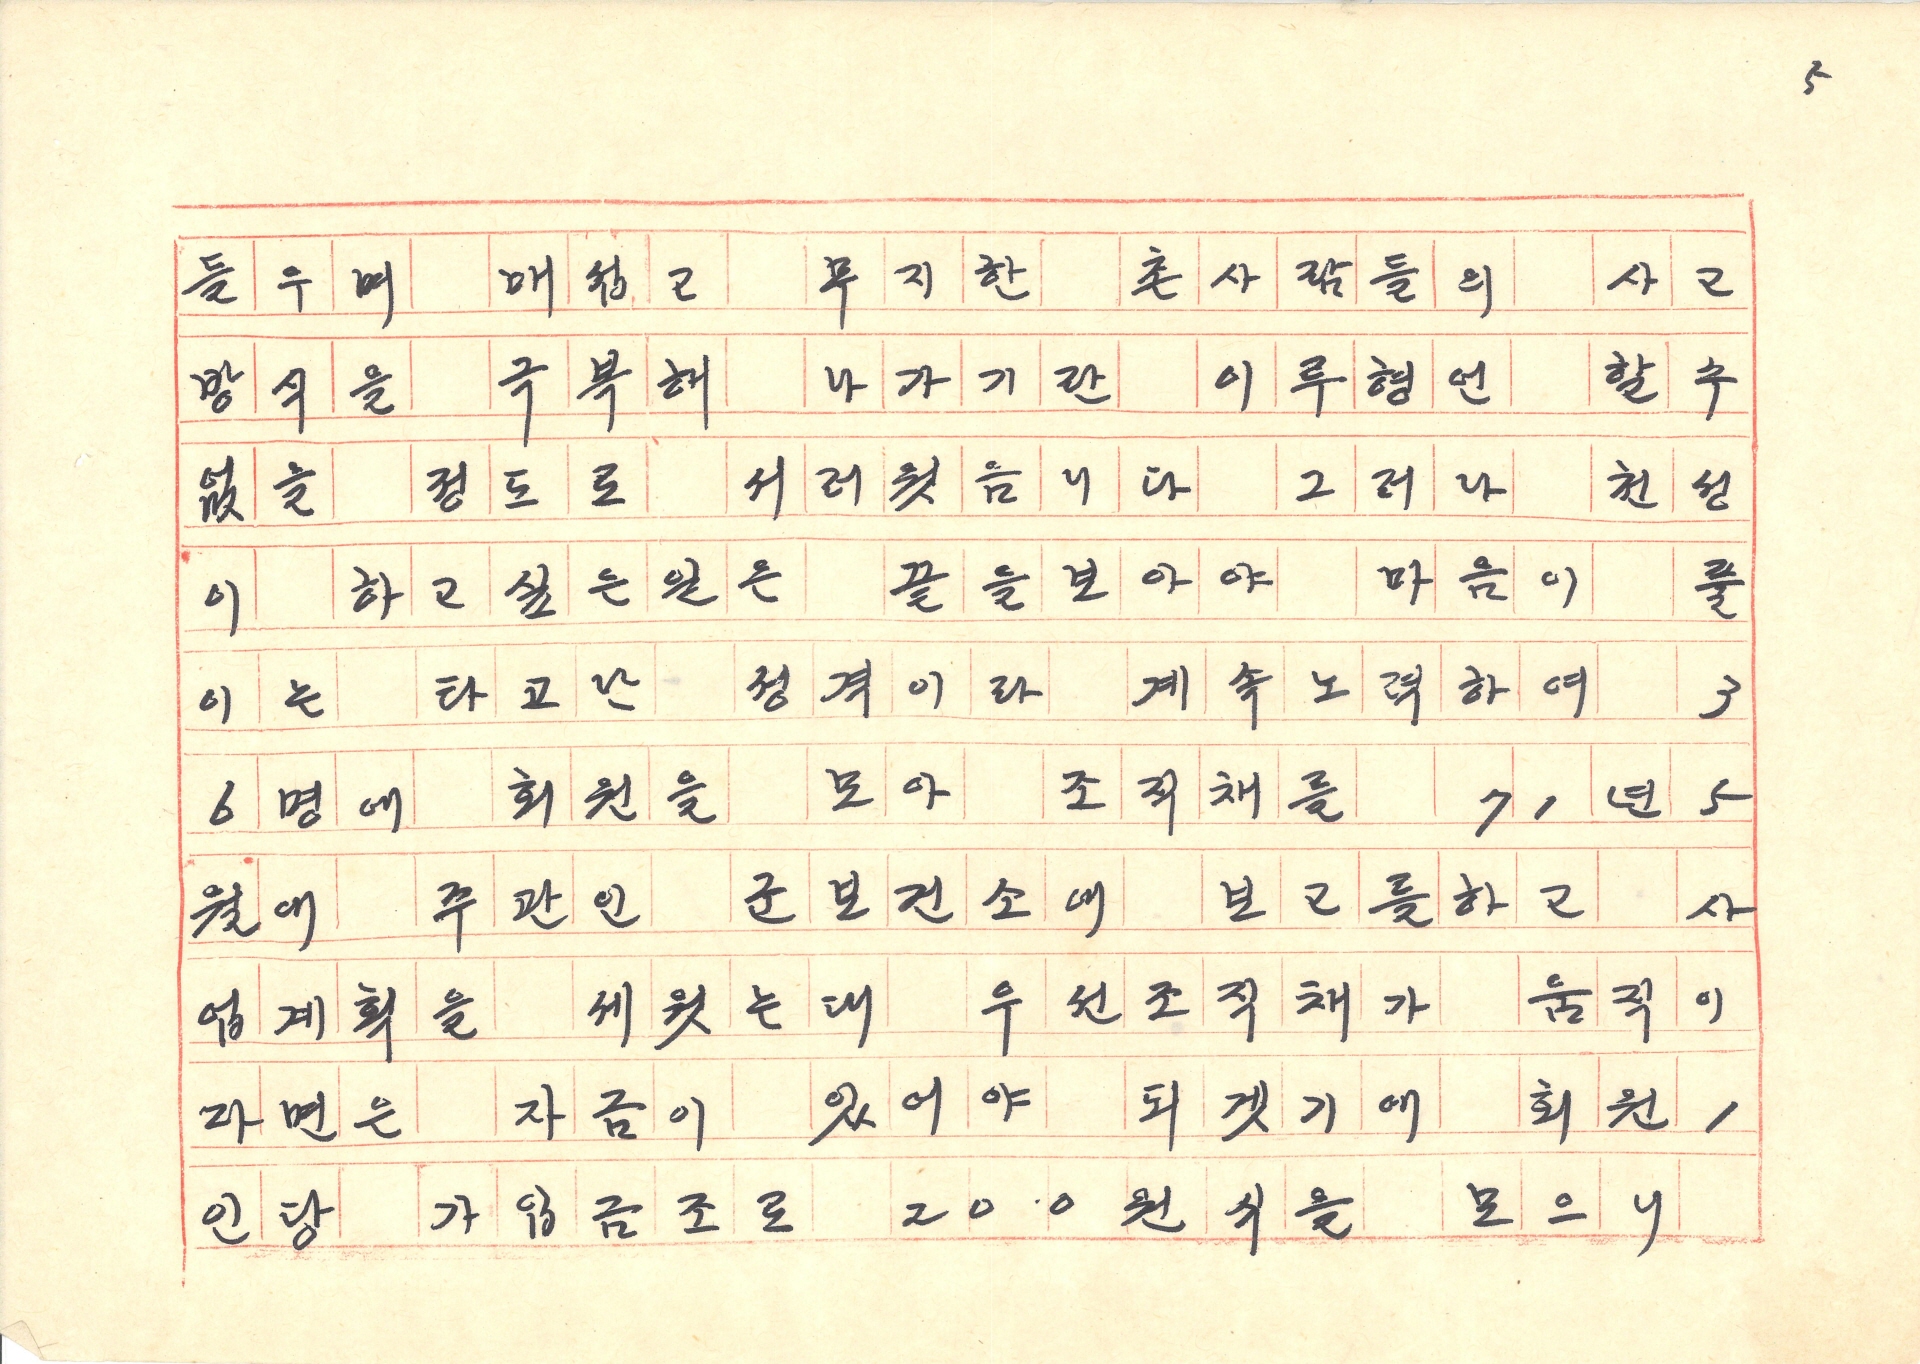 5
들우며 매섭고 무지한 촌사람들의 사고
방식을 극복해 나가기란 이루형언 할수
없을 정도로 서러웟음니다 그러나 천성
이 하고싶은일은 끝을보아야 마음이 풀
이는 타고난 성격이라 계속노력하여 3
6명에 회원을 모아 조직채를 71년5
월에 주관인 군보건소에 보고를하고 사
업계획을 세웟는대 우선조직채가 움직이
라면은 자금이 있어야 되겟기에 회원1
인당 가입금조로 200원식을 모으니